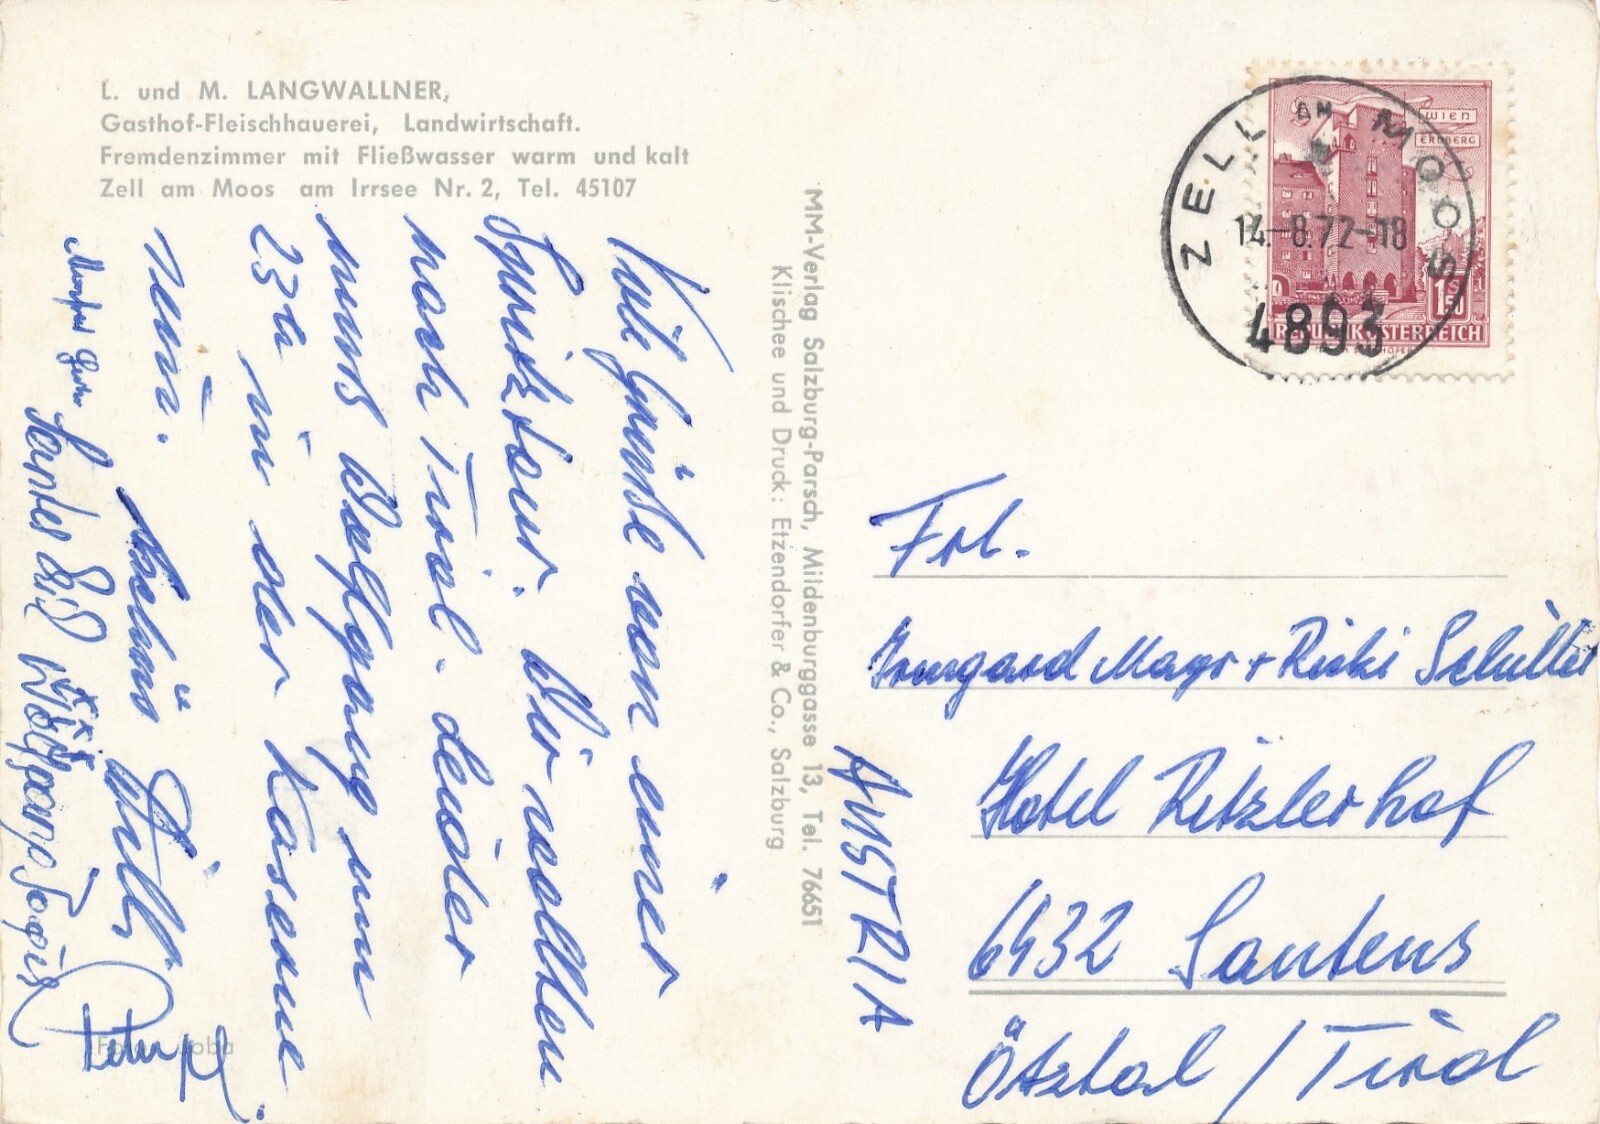 L. und M. LANGWALLNER,
Gasthof-Fleischhauerei, Landwirtschaft.
Fremdenzimmer mit Fließwasser warm und kalt
Zell am Moos am Irrsee Nr. 2, Tel. 45107
Viele Grüße von einer
Spritztour. Wir wollten
nach Tirol. leider
muß Wolfgang um
23h in der Kaserne
sein.
Santer
Wolfgang
Peter
Foto: Joba
MM-Verlag Salzburg-Parsch, Mildenburggasse 13, Tel. 76651
Klischee und Druck: Etzendorfer & Co., Salzburg
ZELL AM MOOS
14.-8.72-18
4893
WIEN
ERDBERG
1S50
REPUBLIK ÖSTERREICH
Frl.
Irmgard Mayr + Ricki Schuller
Hotel Ritzlerhof
6432 Sautens
Ötztal / Tirol
AUSTRIA